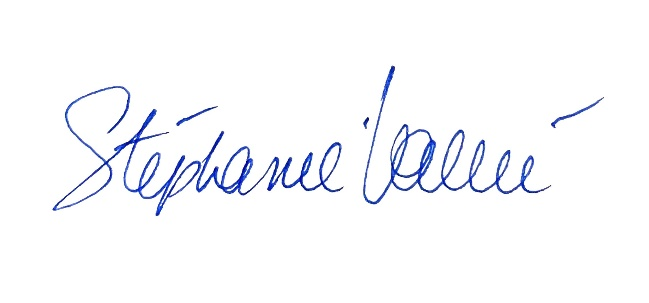 Stéphanie Vallée